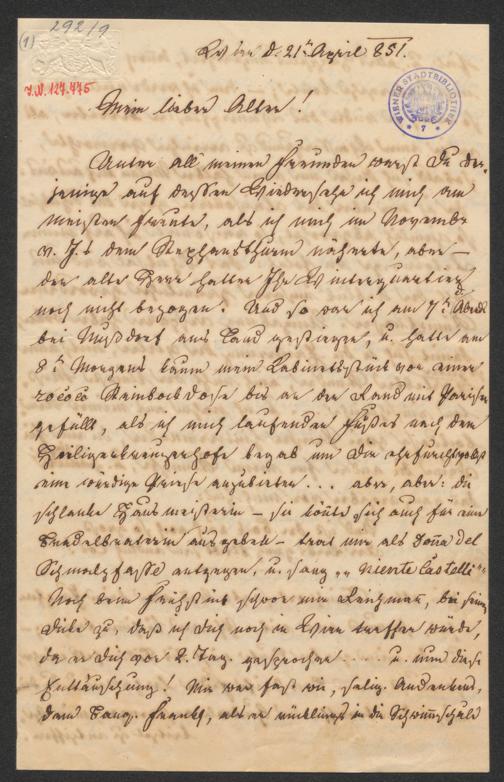 (1) 292/9
J.N. 127.775
WIENER STADTBIBLIOTHEK
* 7 *
d. 21t April 851.
Mein lieber Alter!
Unter all meinen Freunden warst Du der-
jenige auf dessen Wiedersehen ich mich am
meisten freute, als ich mich im November
v. J. dem Stephansthurm näherte, aber —
der alte Herr hatten Ihr Winterquartier
noch nicht bezogen. Und so war ich am 7t Abends
bei Nußdorf ans Land gestiegen, u. hatte am
8t Morgens kaum mein Kabinetsstück von einer
rococo Steinbockdose bis an den Rand mit Pariser
gefüllt, als ich mich laufenden Fußes nach dem
Heiligenkreuzerhofe begab um die ehrfurchtsvollst
eine würdige Priese anzubieten... aber, aber: die
schlanke Hausmeisterin — sie könnte sich auch für eine
ausgeben — trat mir als Doña del
Schmalzfasse entgegen, u. sang „Niente Castelli"
Noch beim Frühstück schwor mir, bei seiner
Dicke zu, daß ich Dich noch in Wien treffen würde,
da er Dich vor 2. Tag. gesprochen .... u. nun diese
Enttäuschung! Mir war fast wie, selig. Andenkens,
dem Sang. Franks, als er rücklings in die Schwimmschule